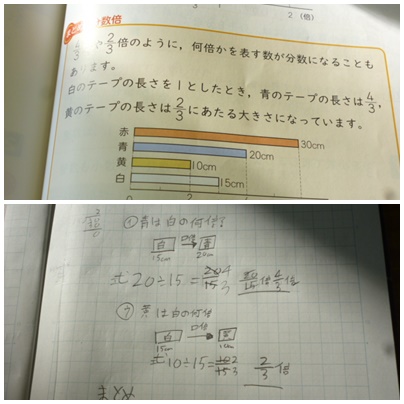 2 (倍)
分数倍
2/3倍のように，何倍かを表す数が分数になることも
あります。
白のテープの長さを1としたとき，青のテープの長さは4/3，
黄のテープの長さは2/3にあたる大きさになっています。
赤 30cm
青 20cm
黄 10cm
白 15cm
青は白の何倍
白 □倍 青
15cm 20cm
式 20÷15=20/15 4/3 20/15倍 4/3倍
黄は白の何倍
白 □倍 黄
15cm
式 10÷15=10/15 2/3 2/3倍